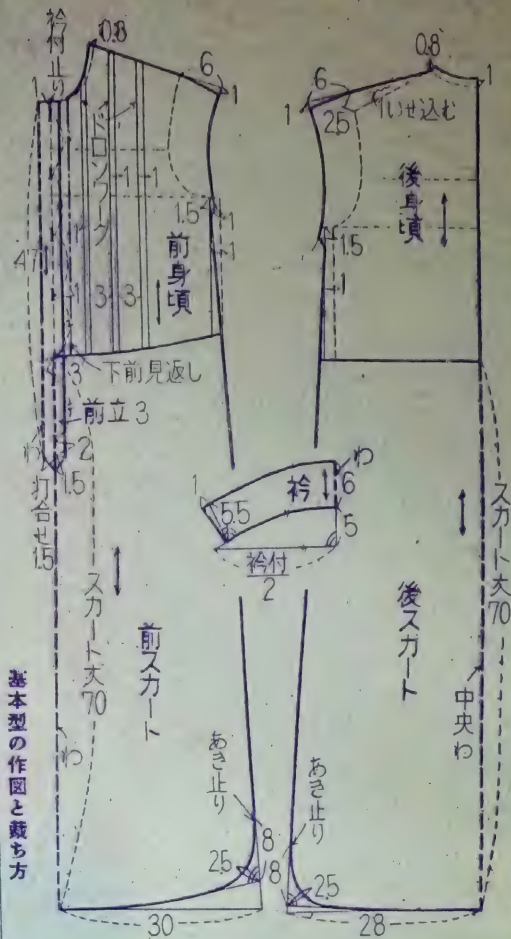 衿付止り
0.8
6
1
1
ドロンワーク
1
1
1.5
1
1
前身頃
47
1
1
3
3
3
下前見返し
前立3
2
わ
1.5
打合せ1.5
スカート丈70
前スカート
わ
あき止り
8
2.5
30
0.8
1
6
1
2.5
いせ込む
後身頃
1.5
1
わ
衿
6
1
5.5
5
衿付
2
スカート丈70
後スカート
中央わ
あき止り
8
2.5
28
基本型の作図と裁ち方